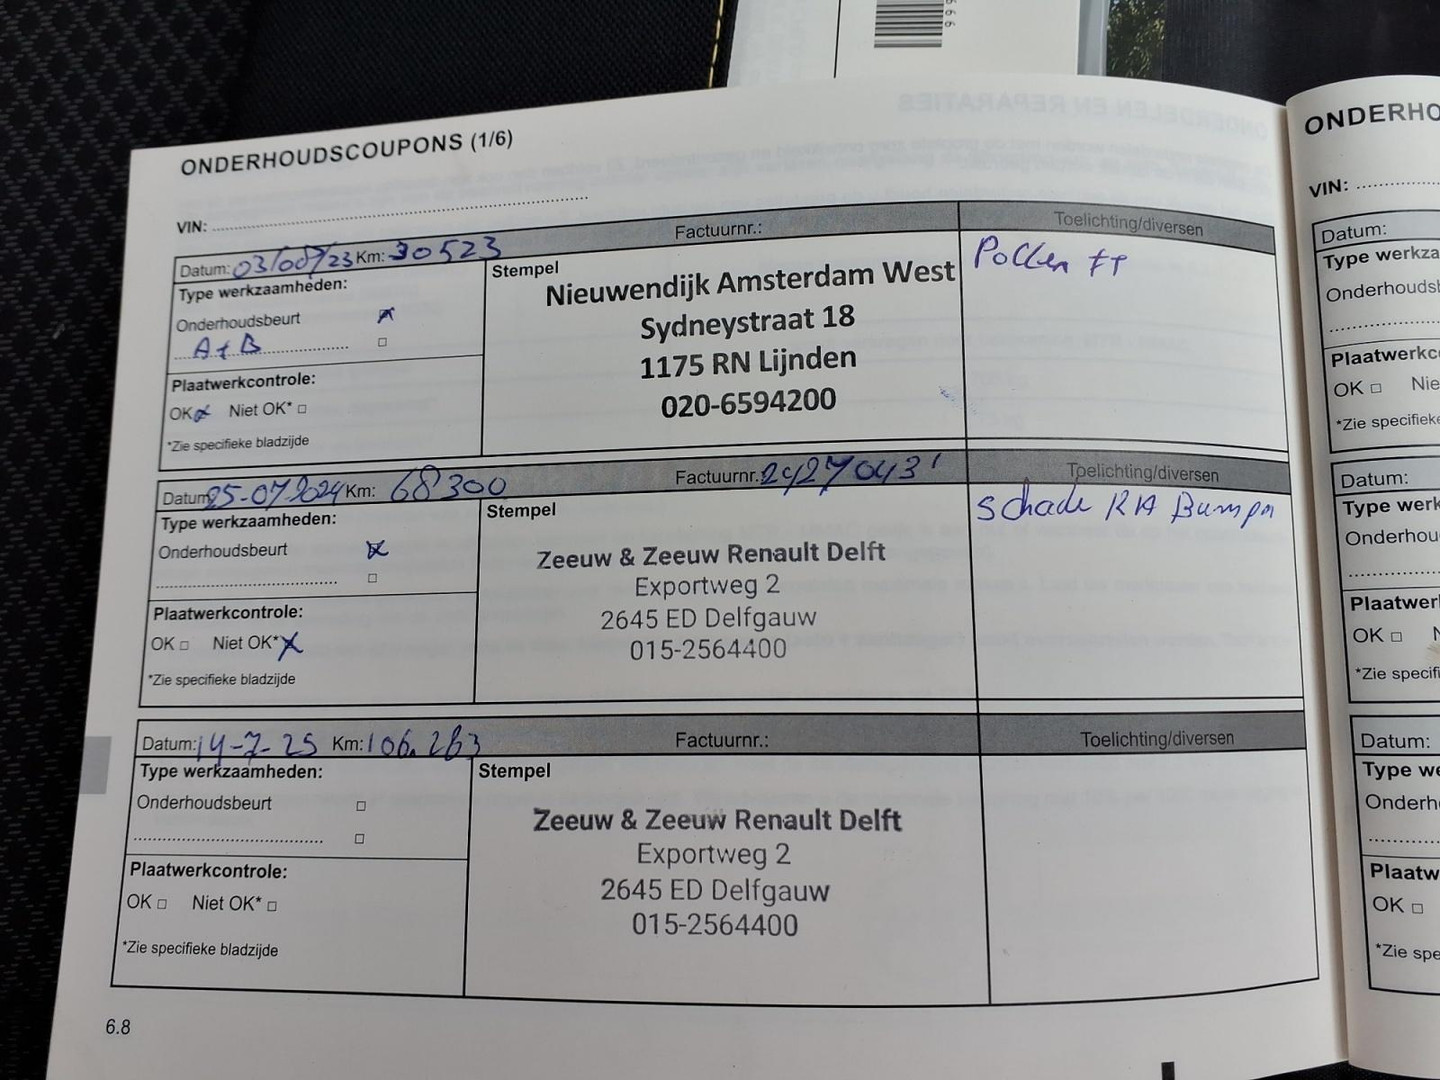 666
ONDERDELEN EN REPARATIES
ONDERHOUDSCOUPONS (1/6)
VIN:
Datum: 03/08/23 Km: 30523 Factuurnr.: Toelichting/diversen
Type werkzaamheden:
Onderhoudsbeurt
A+B
Plaatwerkcontrole:
OK Niet OK*
*Zie specifieke bladzijde
Stempel
Nieuwendijk Amsterdam West
Sydneystraat 18
1175 RN Lijnden
020-6594200
Pollen
Datum: 25-07-2024 Km: 68300 Factuurnr. Toelichting/diversen
Type werkzaamheden:
Onderhoudsbeurt
Plaatwerkcontrole:
OK Niet OK*
*Zie specifieke bladzijde
Stempel
Zeeuw & Zeeuw Renault Delft
Exportweg 2
2645 ED Delfgauw
015-2564400
Schade RA Bumper
Datum: 14-7-25 Km: 106.263 Factuurnr.: Toelichting/diversen
Type werkzaamheden:
Onderhoudsbeurt
Plaatwerkcontrole:
OK Niet OK*
*Zie specifieke bladzijde
Stempel
Zeeuw & Zeeuw Renault Delft
Exportweg 2
2645 ED Delfgauw
015-2564400
6.8
ONDERHO
VIN:
Datum:
Type werkza
Onderhoudsb
Plaatwerkc
OK Nie
*Zie specifieke
Datum:
Type werk
Onderhou
Plaatwer
OK N
*Zie specifi
Datum:
Type we
Onderh
Plaatw
OK
*Zie spe